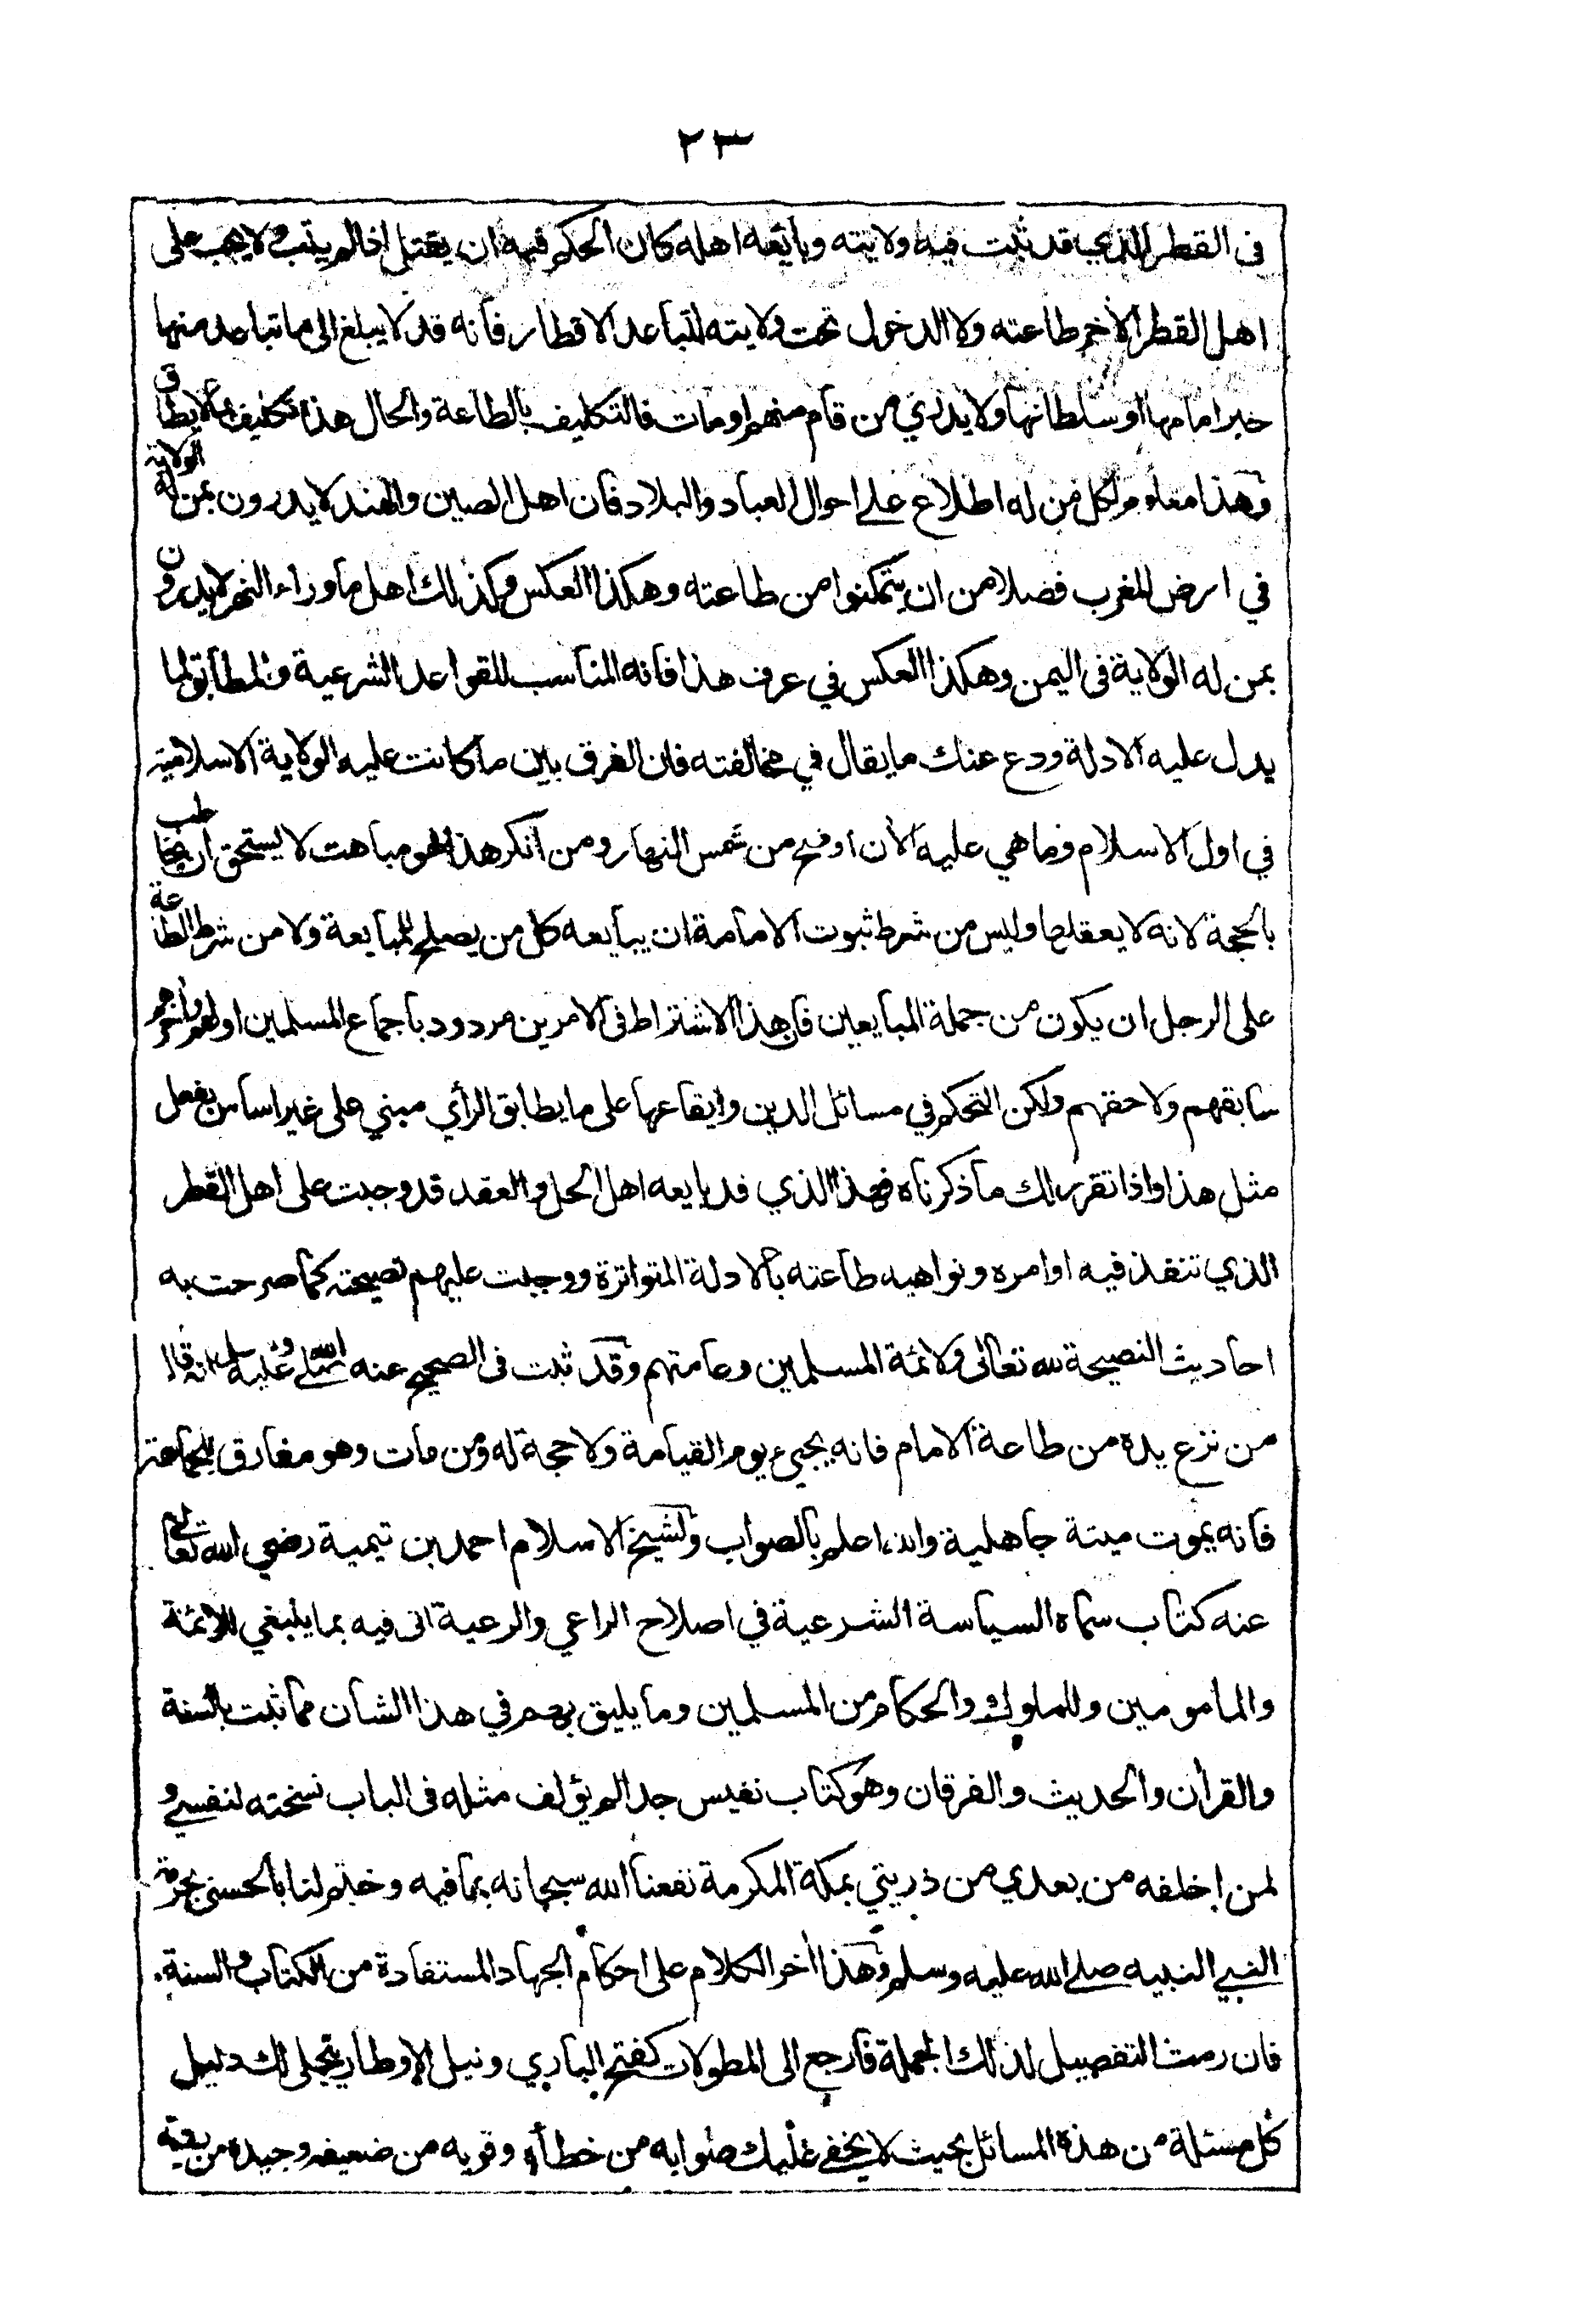 ٢٣
فى القطر الذي قد ثبت فيه ولايته وبايعه اهله كان الحكم فيه ان يقتل اذا لم يتب ولا يجب على
اهل القطر الاخر طاعته ولا الدخول تحت ولايته لتباعد الاقطار فانه قد لا يبلغ الى ما تباعد منها
خبر امامها او سلطانها ولا يدري من قام منهم او مات فالتكليف بالطاعة والحال هذا تكليف بما لا يطاق
وهذا معلوم لكل من له اطلاع على احوال العباد والبلاد فان اهل الصين والهند لا يدرون بمن له الولاية
في ارض المغرب فضلا من ان يتمكنوا من طاعته وهكذا العكس وكذلك اهل ما وراء النهر لا يدرون
بمن له الولاية فى اليمن وهكذا العكس في عرف هذا فانه المناسب للقواعد الشرعية والمطابق لما
يدل عليه الادلة ودع عنك ما يقال في مخالفته فان الفرق بين ما كانت عليه الولاية الاسلامية
في اول الاسلام وما هي عليه الآن اوضح من شمس النهار ومن انكر هذا فهو مباهت لا يستحق ان يخاطب
بالحجة لانه لا يعقلها وليس من شرط ثبوت الامامة ان يبايعه كل من يصلح للمبايعة ولا من شرط الطاعة
على الرجل ان يكون من جملة المبايعين فان هذا الاشتراط فى الامرين مردود باجماع المسلمين اولهم وآخرهم
سابقهم ولاحقهم ولكن التحكم في مسائل الدين وايقاعها على ما يطابق الرأي مبني على غير اساس يفعل
مثل هذا واذا تقرر لك ما ذكرناه فهذا الذي قد بايعه اهل الحل والعقد قد وجبت على اهل القطر
الذي تنفذ فيه اوامره ونواهيه طاعته بالادلة المتواترة ووجبت عليهم نصيحته كما صرحت به
احاديث النصيحة لله تعالى ولائمة المسلمين وعامتهم وقد ثبت فى الصحيح عنه صلى الله عليه وسلم انه قال
من نزع يده من طاعة الامام فانه يجيء يوم القيامة ولا حجة له ومن مات وهو مفارق للجماعة
فانه يموت ميتة جاهلية والله اعلم بالصواب ولشيخ الاسلام احمد بن تيمية رضي الله تعالى
عنه كتاب سماه السياسة الشرعية في اصلاح الراعي والرعية اتى فيه بما ينبغي للائمة
والمأمومين وللملوك والحكام من المسلمين وما يليق بهم في هذا الشان مما ثبت بالسنة
والقرآن والحديث والفرقان وهو كتاب نفيس جدا لم يؤلف مثله فى الباب نسخته لنفسي و
لمن اخلفه من بعدي من ذريتي بمكة المكرمة نفعنا الله سبحانه بما فيه وختم لنا بالحسنى بحرمة
النبي النبيه صلى الله عليه وسلم وهذا آخر الكلام على احكام الجهاد المستفادة من الكتاب والسنة.
فان رمت التفصيل لذلك الجملة فارجع الى المطولات كفتح الباري ونيل الاوطار يتجلى لك دليل
كل مسئلة من هذه المسائل بحيث لا يخفى عليك صوابه من خطأه وقويه من ضعيفه وجيده من